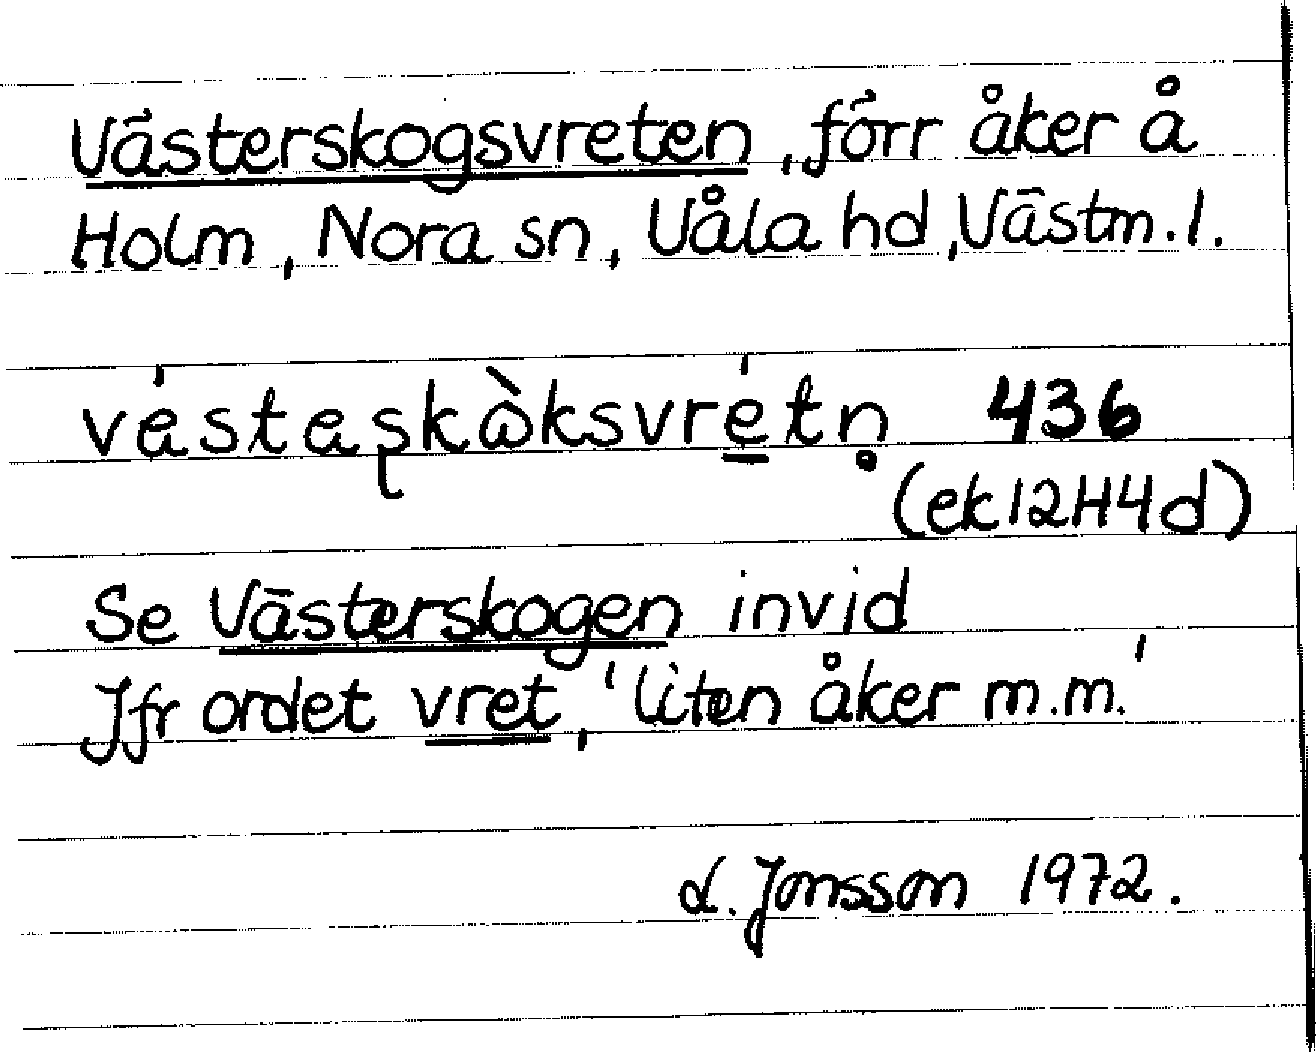 Västerskogsvreten, förr åker å
Holm, Nora sn, Våla hd, Västm.l.
véstaʂkòksvré̱tn̥ 436
(ek12H4d)
Se Västerskogen invid
Jfr ordet vret, 'liten åker m.m.'
L. Jonsson 1972.